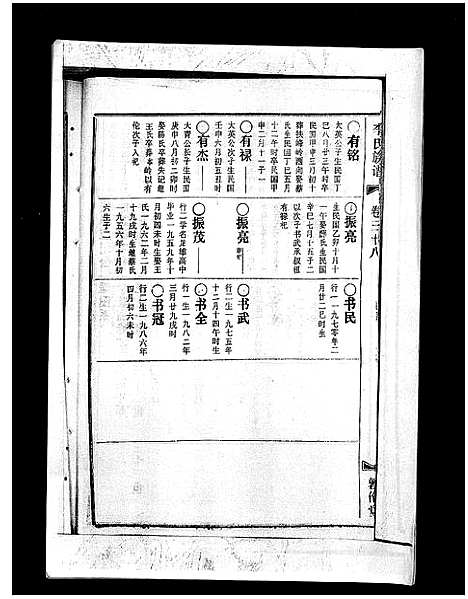 李氏族谱
卷三廿八
〇有铭
大英公子生民国丁
巳八月廿三时卒
民国甲申三月初十
葬扶峰岭酉向娶蔡
氏生民国丁巳五月
十二午时卒民国甲
申二月十一子一
〇有禄
大英公次子生民国
壬申六月初五丑时
〇有杰
大青公长子生民国
庚申八月初二卯时
娶陆氏卒葬失记继
王氏卒葬本岭以有
伦次子入祀
〇振亮
生民国乙卯十月十
一午娶郑氏生民国
辛巳七月十五子二
以次子书武承叔祖
有禄祀
〇振亮
〇振茂
行二学名龙雄高中
毕业一九五九年十
一月初四未时生娶王
氏一九六二年二月
十九戌时生继蔡氏
一九五六年十月初
六生子二
〇书民
行一一九七零年二
月廿二巳时生
〇书武
行二生一九七五年
十二月十四午时生
〇书全
行一生一九八二年
三月廿九戌时
〇书冠
行二生一九八六年
四月初六未时